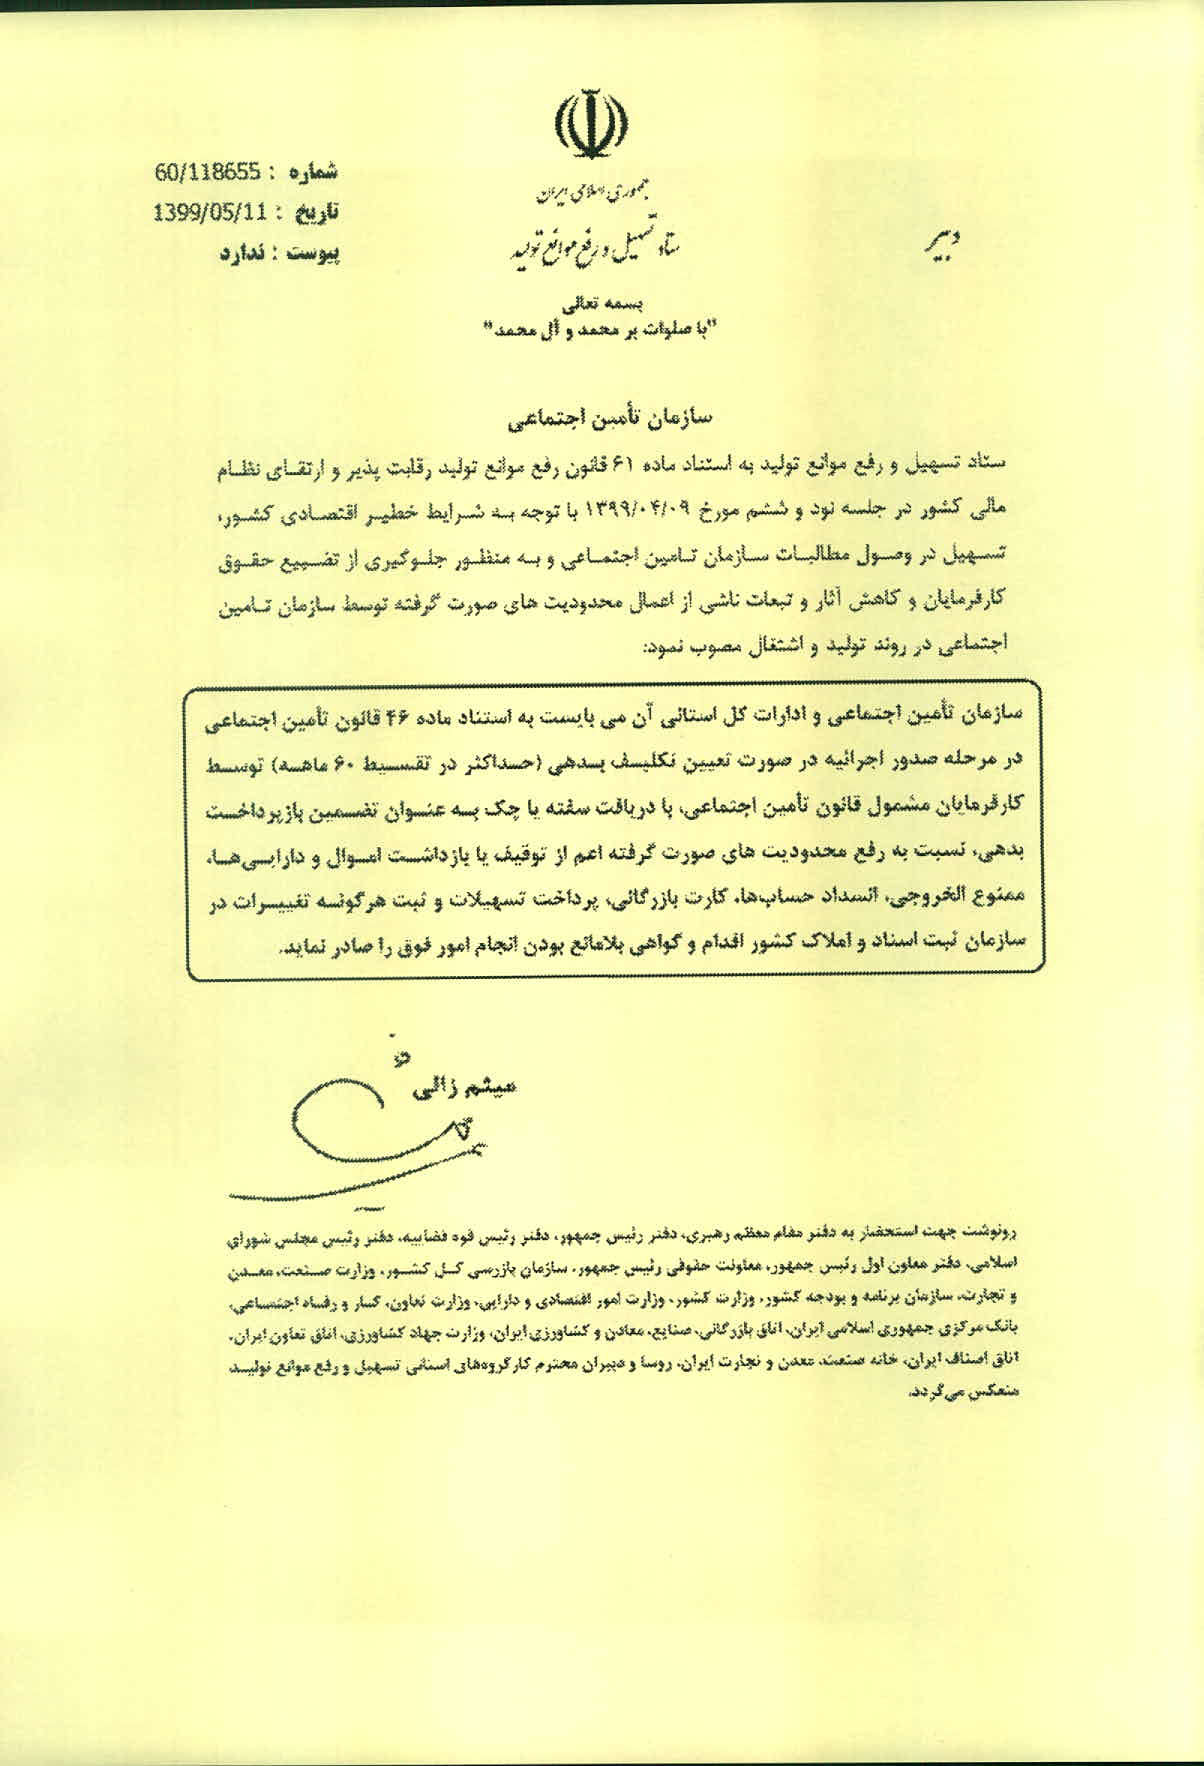 جمهوری اسلامی ایران
ستاد تسهیل و رفع موانع تولید
دبیر
شماره : 60/118655
تاریخ : 1399/05/11
پیوست : ندارد
بسمه تعالی
"با صلوات بر محمد و آل محمد"
سازمان تأمین اجتماعی
ستاد تسهیل و رفع موانع تولید به استناد ماده ۶۱ قانون رفع موانع تولید رقابت پذیر و ارتقـای نظـام
مالی کشور در جلسه نود و ششم مورخ ۱۳۹۹/۰۴/۰۹ با توجه بـه شـرایط خطیـر اقتصـادی کشـور،
تسـهیل در وصـول مطالبـات سـازمان تـامین اجتمـاعی و بـه منظـور جلـوگیری از تضـییع حقـوق
کارفرمایان و کاهش آثار و تبعات ناشی از اعمال محدودیت های صورت گرفته توسط سازمان تـامین
اجتماعی در روند تولید و اشتغال مصوب نمود:
سازمان تأمین اجتماعی و ادارات کل استانی آن می بایست به استناد ماده ۴۶ قانون تأمین اجتماعی
در مرحله صدور اجرائیه در صورت تعیین تکلیـف بـدهی (حـداکثر در تقسـیط ۶۰ ماهـه) توسـط
کارفرمایان مشمول قانون تأمین اجتماعی، با دریافت سفته یا چک بـه عنـوان تضـمین بازپرداخـت
بدهی، نسبت به رفع محدودیت های صورت گرفته اعم از توقیف یا بازداشـت امـوال و دارایـی‌هـا،
ممنوع الخروجی، انسداد حساب‌ها، کارت بازرگانی، پرداخت تسهیلات و ثبت هرگونـه تغییـرات در
سازمان ثبت اسناد و املاک کشور اقدام و گواهی بلامانع بودن انجام امور فوق را صادر نماید.
میثم زالی
رونوشت جهت استحضار به دفتر مقام معظم رهبری، دفتر رئیس جمهور، دفتر رئیس قوه قضاییه، دفتر رئیس مجلس شورای
اسلامی، دفتر معاون اول رئیس جمهور، معاونت حقوقی رئیس جمهور، سازمان بازرسی کـل کشـور، وزارت صـنعت، معـدن
و تجارت، سازمان برنامه و بودجه کشور، وزارت کشور، وزارت امور اقتصادی و دارایی، وزارت تعاون، کـار و رفـاه اجتمـاعی،
بانک مرکزی جمهوری اسلامی ایران، اتاق بازرگانی، صنایع، معادن و کشاورزی ایران، وزارت جهاد کشاورزی، اتاق تعاون ایران،
اتاق اصناف ایران، خانه صنعت، معدن و تجارت ایران، روسا و دبیران محترم کارگروه‌های استانی تسهیل و رفع موانع تولیـد
منعکس می‌گردد.